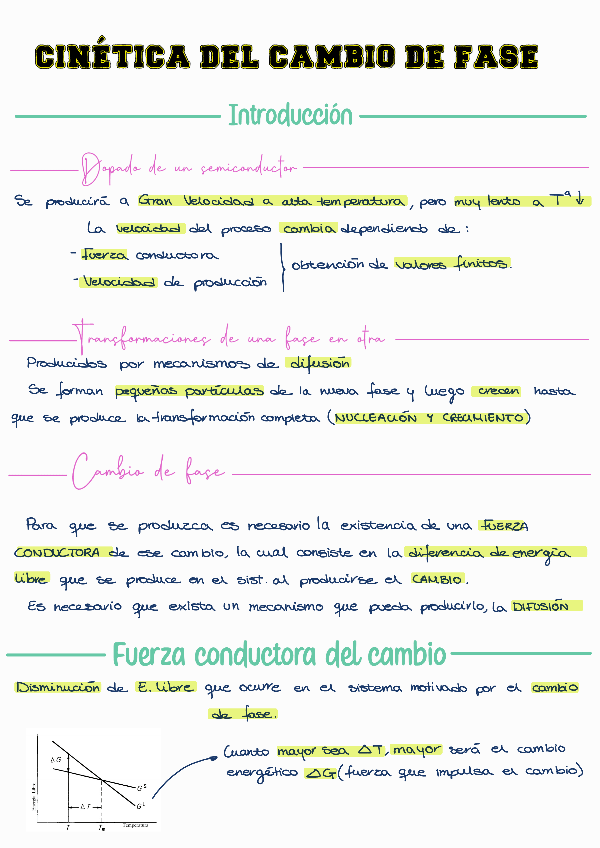 CINÉTICA DEL CAMBIO DE FASE
Introducción
Dopado de un semiconductor
Se producirá a Gran Velocidad a alta temperatura, pero muy lento a Tª ↓
La velocidad del proceso cambia dependiendo de:
- Fuerza conductora
- Velocidad de producción
obtención de valores finitos.
Transformaciones de una fase en otra
Producidos por mecanismos de difusión
Se forman pequeñas partículas de la nueva fase y luego crecen hasta
que se produce la transformación completa (NUCLEACIÓN Y CRECIMIENTO)
Cambio de fase
Para que se produzca es necesario la existencia de una FUERZA
CONDUCTORA de ese cambio, la cual consiste en la diferencia de energía
libre que se produce en el sist. al producirse el CAMBIO.
Es necesario que exista un mecanismo que pueda producirlo, la DIFUSIÓN
Fuerza conductora del cambio
Disminución de E. libre que ocurre en el sistema motivado por el cambio
de fase.
Cuanto mayor sea ΔT, mayor será el cambio
energético ΔG (fuerza que impulsa el cambio)
Δ G
G S
G L
Δ T
T
Temperatura